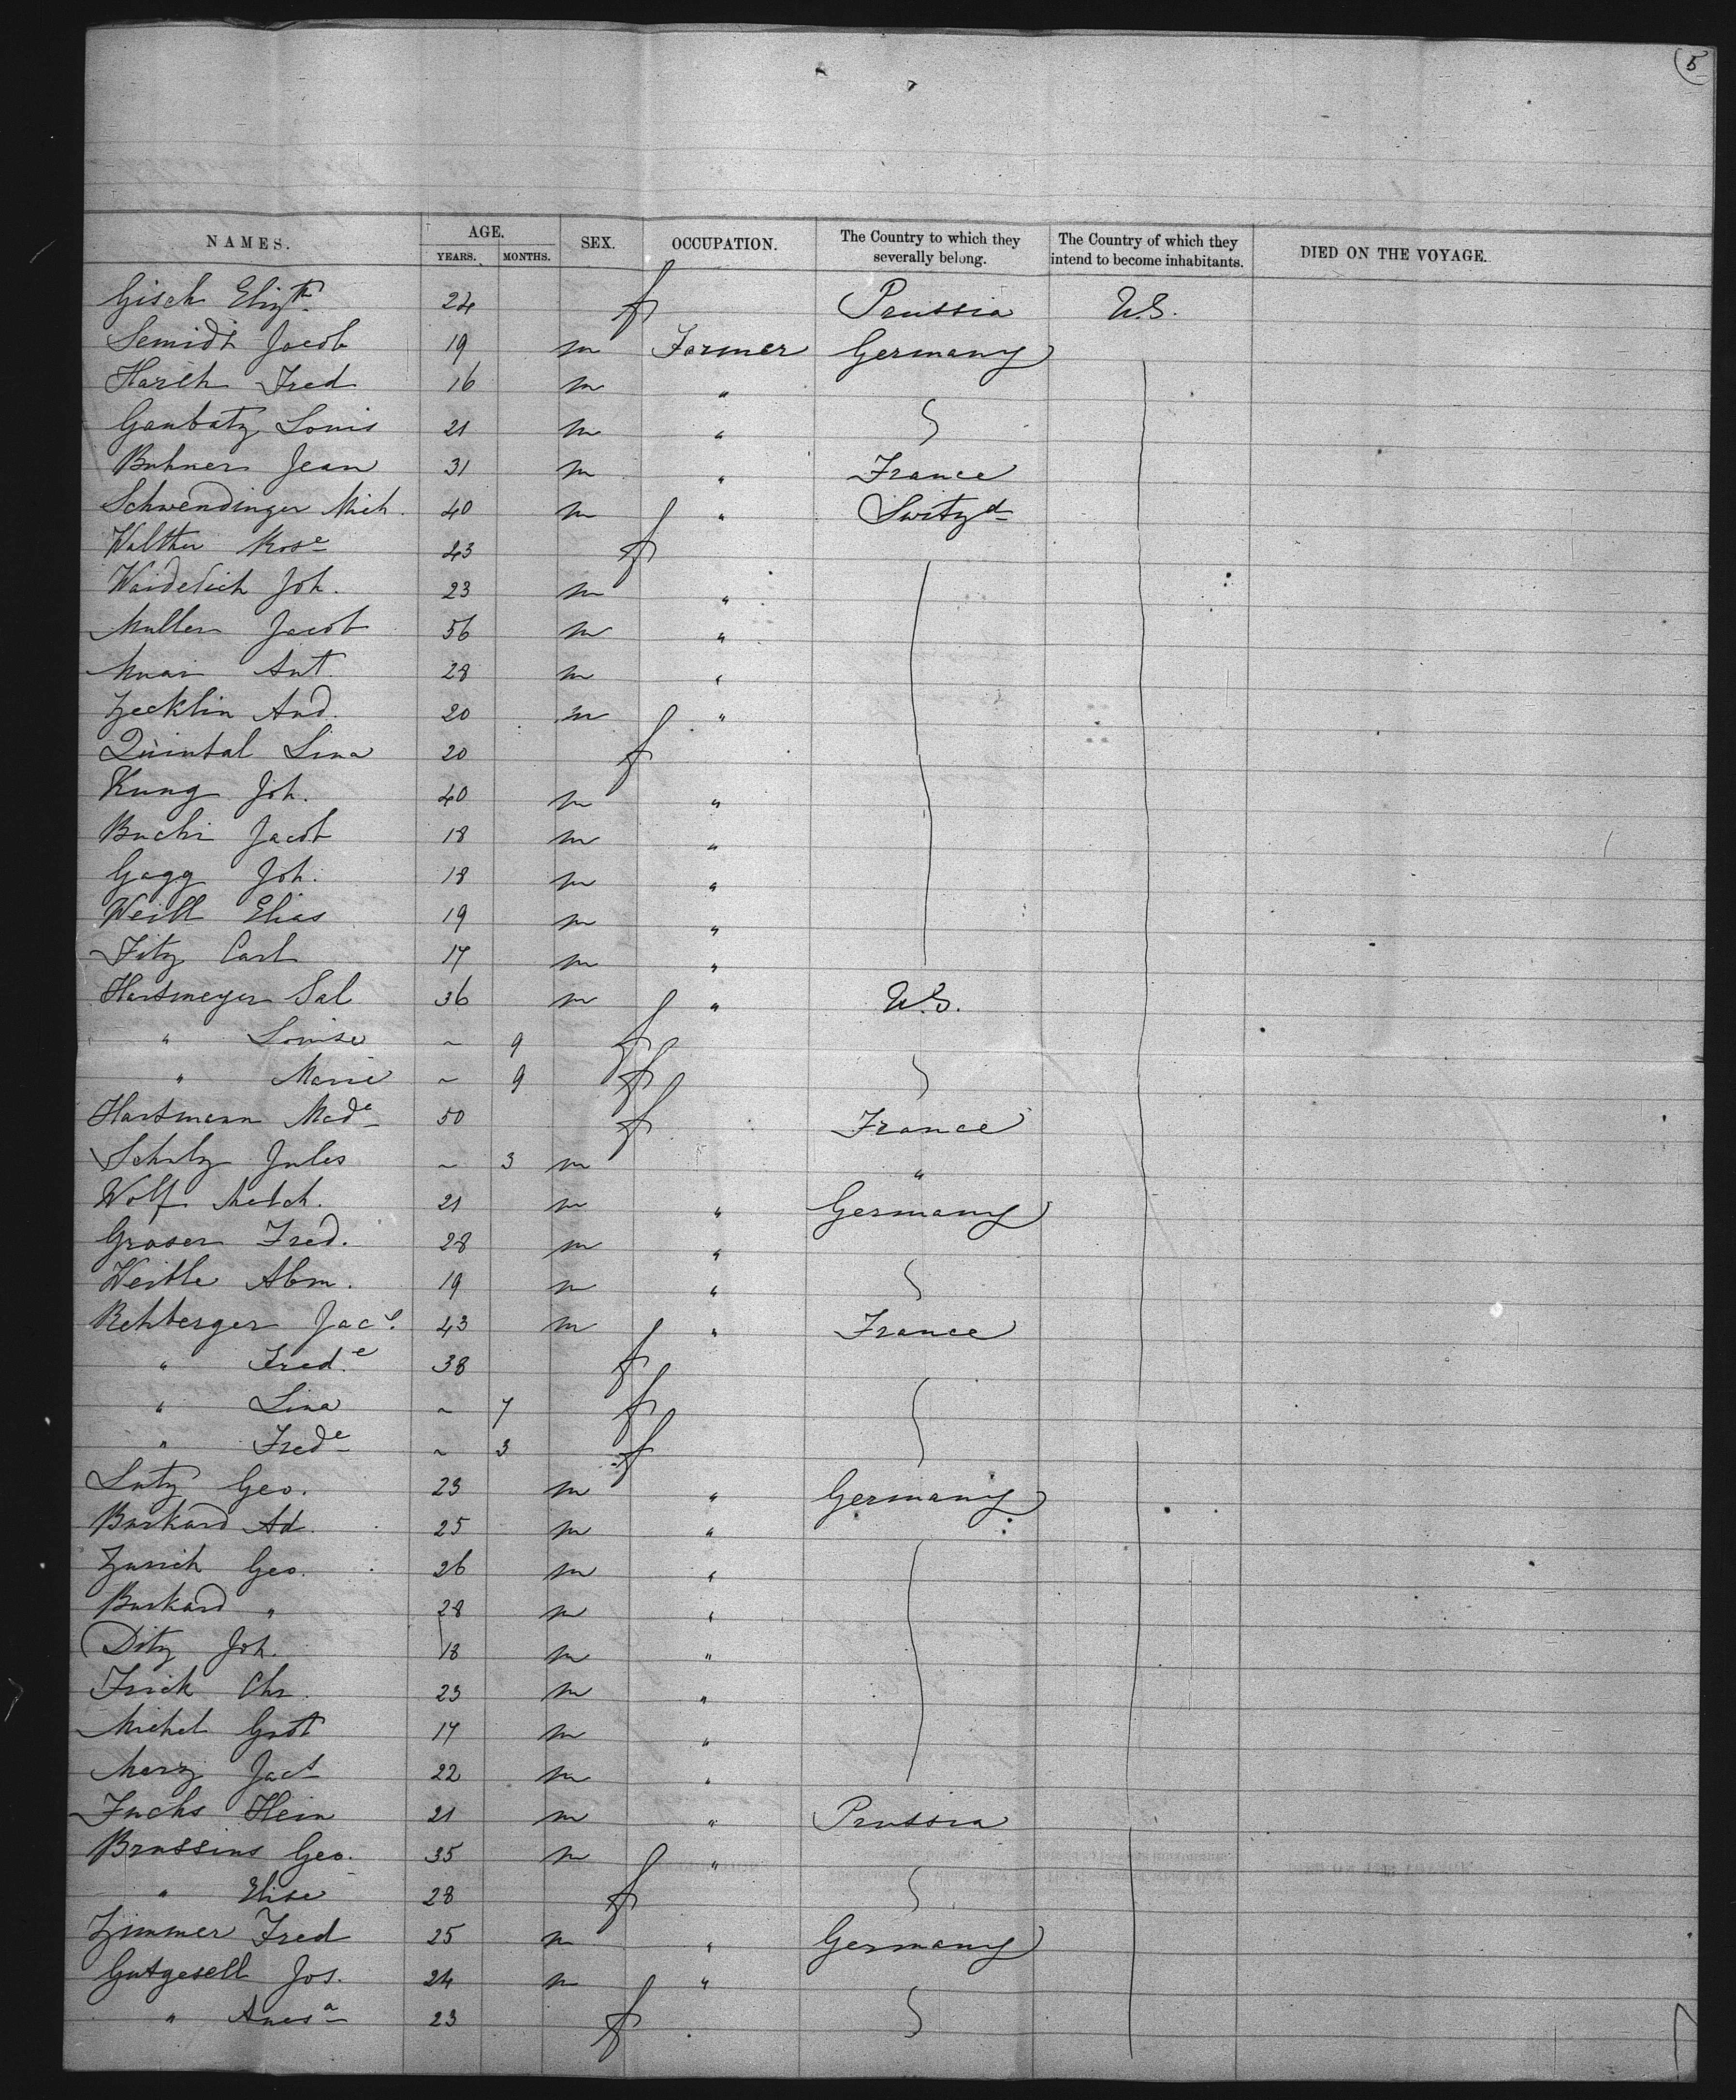 5
NAMES. AGE. SEX. OCCUPATION. The Country to which they severally belong. The Country of which they intend to become inhabitants. DIED ON THE VOYAGE.
YEARS. MONTHS.
Gisch Elizth 24 f Prussia U.S.
Semidt Jacob 19 m Farmer Germany
Harth Fred 16 m "
Gaubatz Louis 21 m "
Buhner Jean 31 m " France
Schwendinger Mich. 40 m " Switzd
Walther Rose 43 f
Waidelich Joh. 23 m "
Muller Jacob 56 m "
Ant. 28 m "
Zecklin And. 20 m "
Quintal Lina 20 f
Kung Joh. 40 m "
Buchi Jacob 18 m "
Gagg Joh. 18 m "
Weill Elias 19 m "
Fitz Carl 17 m "
Hartmeyer Sal 36 m " U.S.
" Louise ~ 9 f
" Marie ~ 9 f
Hartmann Made 50 f France
Schilz Jules ~ 3 m "
Wolf Melch. 21 m " Germany
Graser Fred. 28 m "
Weible Abm. 19 m "
Rehberger Jac. 43 m " France
" Frede 38 f
" Lina ~ 7 f
" Frede ~ 3 f
Lutz Geo. 23 m " Germany
Burkard Ad. 25 m "
Zurich Geo. 26 m "
Burkard " 28 m "
Ditz Joh. 18 m "
Frick Chr. 23 m "
Michel Grot 17 m "
Merz Jac 22 m "
Fuchs Hein 21 m " Prussia
Brussius Geo. 35 m "
" Elise 28 f
Zimmer Fred 25 m " Germany
Gutgesell Jos. 24 m "
" 23 f